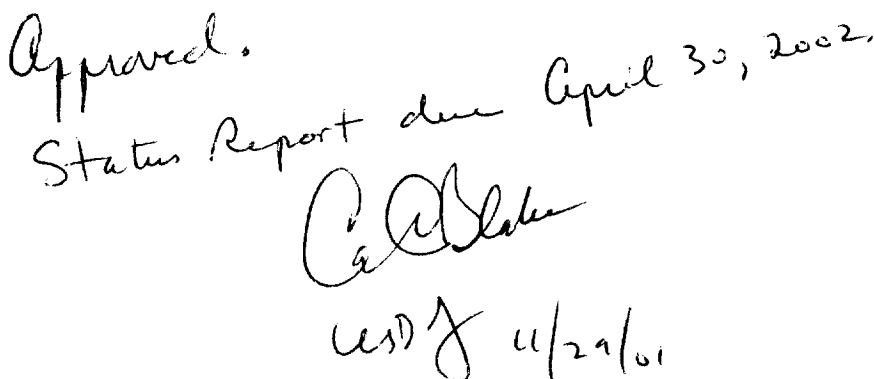 Approved.
Status Report due April 30, 2002.
Ca C Blake
USDJ 11/29/01